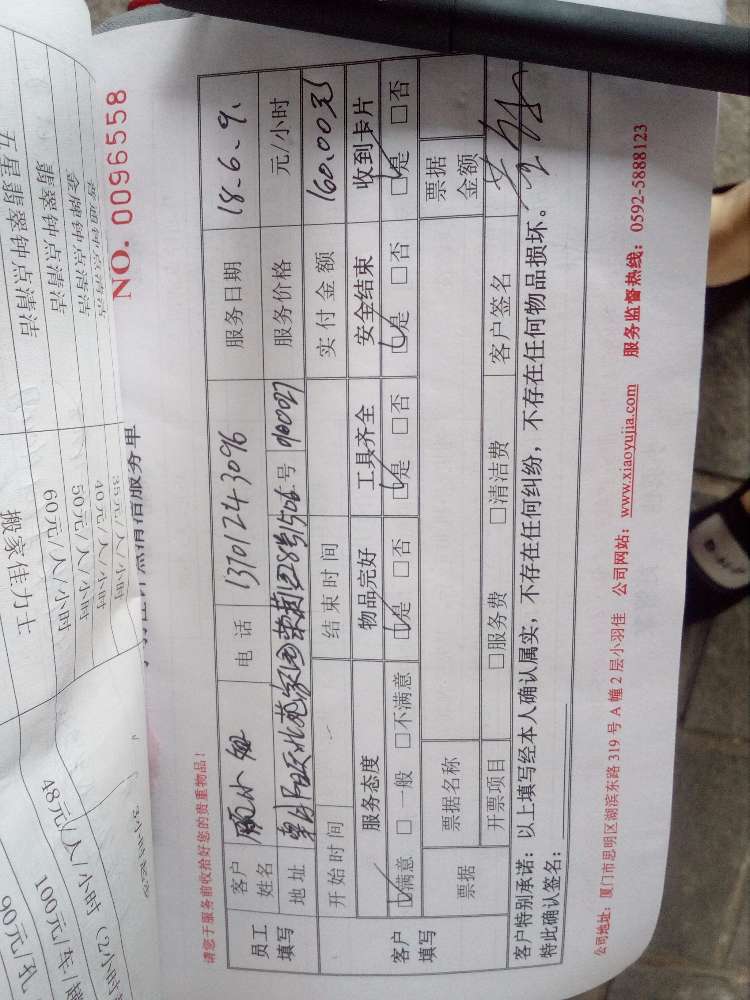 五星翡翠钟点清洁
翡翠钟点清洁
金牌钟点清洁
普通钟点清洁
搬家佳力士
60元/人/小时
50元/人/小时
40元/人/小时
35元/人/小时
90元/孔
100元/车/趟
48元/人/小时（2小时
NO. 0096558
点清洁服务单
请您于服务前收拾好您的贵重物品！
员工填写 客户姓名 电话 13701243096 服务日期 18.6.9.
地址 号 900027 服务价格 元/小时
客户填写 开始时间 结束时间 实付金额 160.00元
服务态度 物品完好 工具齐全 安全结束 收到卡片
☑满意 □一般 □不满意 ☑是 □否 ☑是 □否 ☑是 □否 ☑是 □否
票据 票据名称 票据金额
开票项目 □服务费 □清洁费 客户签名
客户特别承诺：以上填写经本人确认属实，不存在任何纠纷，不存在任何物品损坏。
特此确认签名：
公司地址：厦门市思明区湖滨东路 319 号 A 幢 2 层小羽佳 公司网站：www.xiaoyujia.com 服务监督热线：0592-5888123